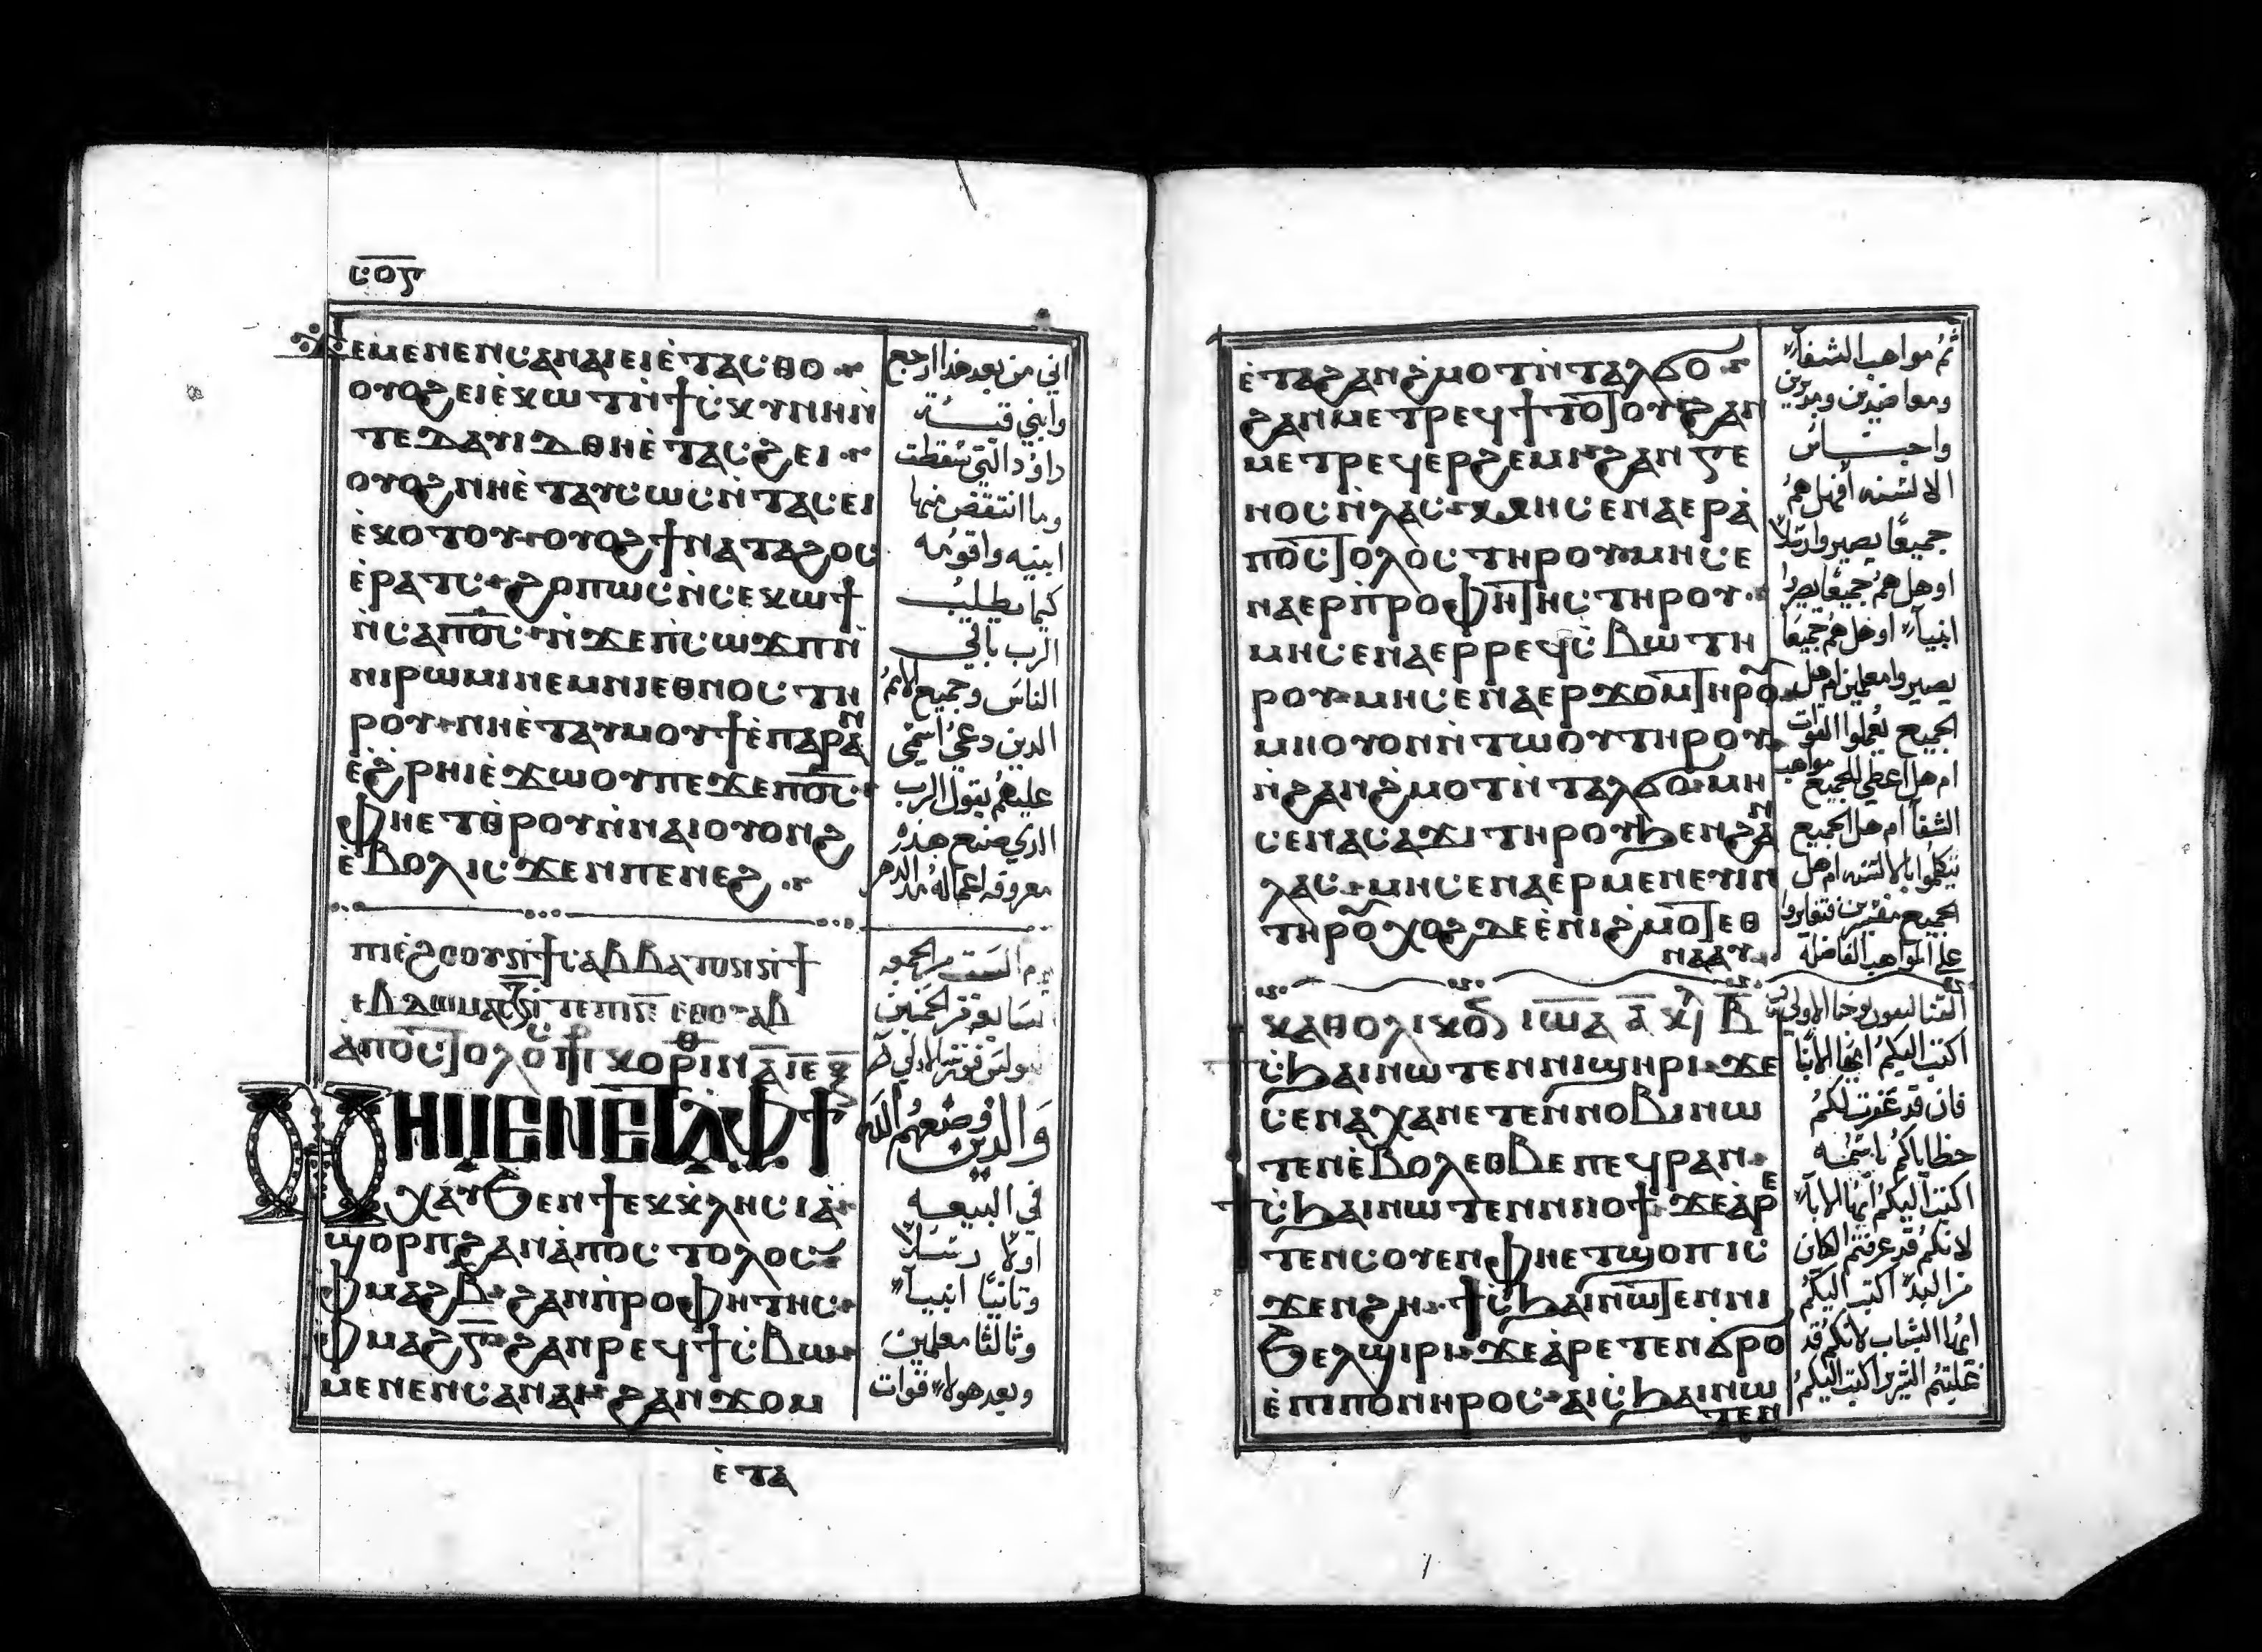 ⲥⲟⲋ
ⲙⲉⲛⲉⲛⲥⲁⲛⲁⲓⲉⲓⲉ̀ⲧⲁⲥⲑⲟ
ⲟⲩⲟϩⲉⲓⲉ̀ⲕⲱⲧⲛ̀ϯⲥ̀ⲕⲩⲛⲏⲛ̀
ⲧⲉⲇⲁⲩⲓⲇⲑⲏⲉ̀ⲧⲁⲥϩⲉⲓ
ⲟⲩⲟϩⲛⲏⲉ̀ⲧⲁⲩⲥⲱⲥⲛ̀ⲧⲁⲥⲉⲓ
ⲉ̀ⲕⲟⲧⲟⲩⲟⲩⲟϩϯⲛⲁⲧⲁϩⲟⲥ
ⲉ̀ⲣⲁⲧⲥϩⲟⲡⲱⲥⲛ̀ⲥⲉⲕⲱϯ
ⲛ̀ⲥⲁⲡⲟ̅ⲥ̅ⲛ̀ϫⲉⲡ̀ⲥⲱϫⲡⲛ̀
ⲛⲓⲣⲱⲙⲓⲛⲉⲙⲛⲓⲉⲑⲛⲟⲥⲧⲏ
ⲣⲟⲩⲛⲏⲉ̀ⲧⲁⲩⲙⲟⲩϯⲉ̀ⲡⲁⲣⲁⲛ
ⲉ̀ϩ̀ⲣⲏⲓⲉ̀ϫⲱⲟⲩⲡⲉϫⲉⲡⲟ̅ⲥ̅
ⲫⲏⲉⲧⲑ̀ⲣⲟⲩⲛ̀ⲛⲁⲓⲟⲩⲟⲛϩ
ⲉ̀ⲃⲟⲗⲓⲥϫⲉⲛⲡⲉⲛⲉϩ
اني من بعد هذا ارجع
وابني قبـــة
داوُد التي سقطت
وما انتقض منها
ابنيه واقومُه
كيما يطلب
الرب باقي
الناس وجميع الامم
الدين دعي اسمي
عليهم يقول الرب
الدي صنع هذه
معروفه اعماله مند الدهر
ⲁⲡⲟⲥⲧⲟⲗⲟⲥ ⲡⲣ ⲕⲟⲣⲓⲛⲑ ⲁ̅
ⲛⲏⲙⲉⲛⲉⲧⲁⲫϯ
ⲭⲁⲩϧⲉⲛϯⲉⲕⲕⲗⲏⲥⲓⲁ̀
ϣⲟⲣⲡϩⲁⲛⲁ̀ⲡⲟⲥⲧⲟⲗⲟⲥ
ⲫⲙⲁϩⲃ̅ϩⲁⲛⲡ̀ⲣⲟⲫⲏⲧⲏⲥ
ⲫⲙⲁϩⲅ̅ϩⲁⲛⲣⲉϥϯⲥ̀ⲃⲱ
ⲙⲉⲛⲉⲛⲥⲁⲛⲁⲓϩⲁⲛϫⲟⲙ
والدين وضعهم الله
في البيعـه
اولاً رسلاً
وثانيًا انبيآء
وثالثا معلمين
وبعد هولاء قوات
ⲉ̀ⲧⲁ
ⲉ̀ⲧⲁϩⲁⲛϩ̀ⲙⲟⲧⲛ̀ⲧⲁⲗϭⲟ
ϩⲁⲛⲙⲉⲧⲣⲉϥϯⲧⲟⲧⲟⲩϩⲁⲛ
ⲙⲉⲧⲣⲉϥⲉⲣϩⲉⲙⲓϩⲁⲛⲅⲉ
ⲛⲟⲥⲛ̀ⲗⲁⲥⲙⲏⲥⲉⲛⲁⲉⲣⲁ̀
ⲡⲟⲥⲧⲟⲗⲟⲥⲧⲏⲣⲟⲩⲙⲏⲥⲉ
ⲛⲁⲉⲣⲡ̀ⲣⲟⲫⲏⲧⲏⲥⲧⲏⲣⲟⲩ
ⲙⲏⲥⲉⲛⲁⲉⲣⲣⲉϥⲥ̀ⲃⲱⲧⲏ
ⲣⲟⲩⲙⲏⲥⲉⲛⲁⲉⲣϫⲟⲙⲧⲏⲣⲟ
ⲙⲏⲟⲩⲟⲛⲛ̀ⲧⲱⲟⲩⲧⲏⲣⲟⲩ
ⲛ̀ϩⲁⲛϩ̀ⲙⲟⲧⲛ̀ⲧⲁⲗϭⲟⲙⲏ
ⲥⲉⲛⲁⲥⲁϫⲓⲧⲏⲣⲟⲩϧⲉⲛϩⲁⲛ
ⲗⲁⲥⲙⲏⲥⲉⲛⲁⲉⲣⲙⲉⲛⲉⲩⲓⲛ
ⲧⲏⲣⲟⲭⲟϩⲇⲉⲉ̀ⲛⲓϩ̀ⲙⲟⲧⲉⲑ
ⲛⲁⲁⲩ
ثمُ مواهب الشفآء
ومعاضدين ومدبرين
واجنــاس
الالسنه افهل همُ
جميعًا يصيروا رسلاً
اوهل همُ جميعًا يصيروا
انبيآء اوهل همُ جميعًا
يصيروا معلمين ام هل
الجميع يعملوا القوات
ام هل اعطي للجميع مواهب
الشفآ ام هل الجميع
يتكلموا بالالسنه ام هل
الجميع مفسرين فتغايروا
علي المواهب الفاضلة
ⲕⲁⲑⲟⲗⲓⲕⲟⲛ ⲓⲱⲁ ⲁ̅ ⲕⲉ ⲃ̅
ϯⲥ̀ϧⲁⲓⲛⲱⲧⲉⲛⲛⲓϣⲏⲣⲓϫⲉ
ⲥⲉⲛⲁⲭⲁⲛⲉⲧⲉⲛⲛⲟⲃⲓⲛⲱ
ⲧⲉⲛⲉ̀ⲃⲟⲗⲉⲑⲃⲉⲡⲉϥⲣⲁⲛ
ϯⲥ̀ϧⲁⲓⲛⲱⲧⲉⲛⲛⲓⲓⲟϯϫⲉⲁ̀ⲣⲉ
ⲧⲉⲛⲥⲟⲩⲉⲛⲫⲏⲉⲧϣⲟⲡⲓⲥ
ϫⲉⲛϩⲏϯⲥ̀ϧⲁⲓⲛⲱⲧⲉⲛⲛⲓ
ϧⲉⲗϣⲓⲣⲓϫⲉⲁ̀ⲣⲉⲧⲉⲛϭⲣⲟ
ⲉ̀ⲡⲓⲡⲟⲛⲏⲣⲟⲥⲁⲓⲥ̀ϧⲁⲓⲛⲱ
ⲧⲉⲛ
اكتب اليكمُ ايها الابنا
فان قد غفرت لكمُ
خطاياكمُ باسمـه
اكتب اليكمُ ايها الابآء
لانكمُ قد عرفتمُ الكاين
من البدء اكتب اليكمُ
ايها الشباب لانكمُ قد
غلبتمُ الشرير اكتب اليكمُ